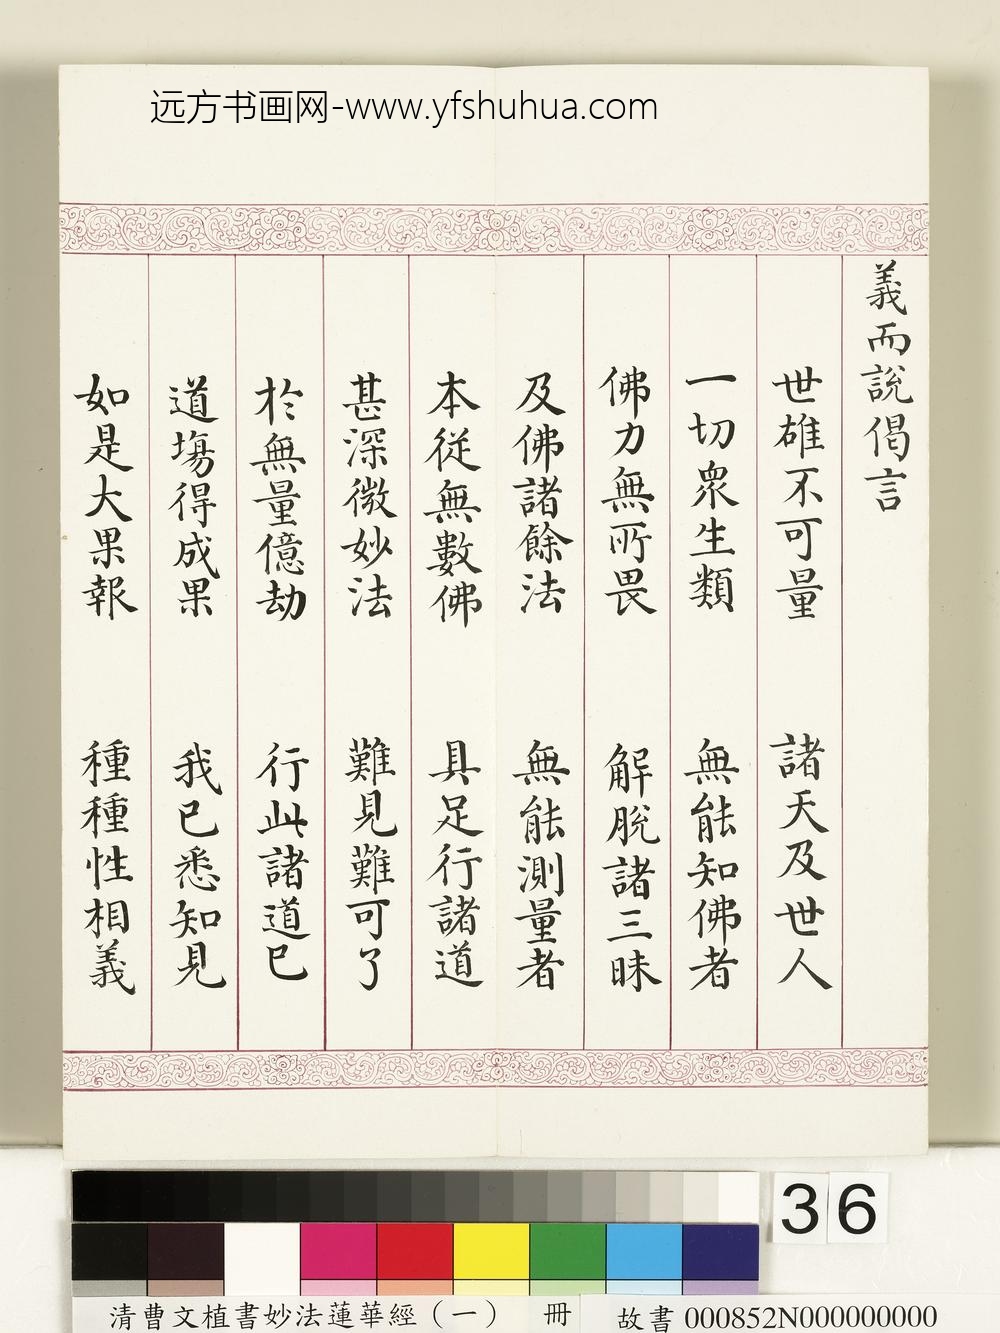 远方书画网-www.yfshuhua.com
義而說偈言
世雄不可量　諸天及世人
一切眾生類　無能知佛者
佛力無所畏　解脫諸三昧
及佛諸餘法　無能測量者
本從無數佛　具足行諸道
甚深微妙法　難見難可了
於無量億劫　行此諸道已
道場得成果　我已悉知見
如是大果報　種種性相義
36
清曹文植書妙法蓮華經（一）　冊　故書000852N000000000